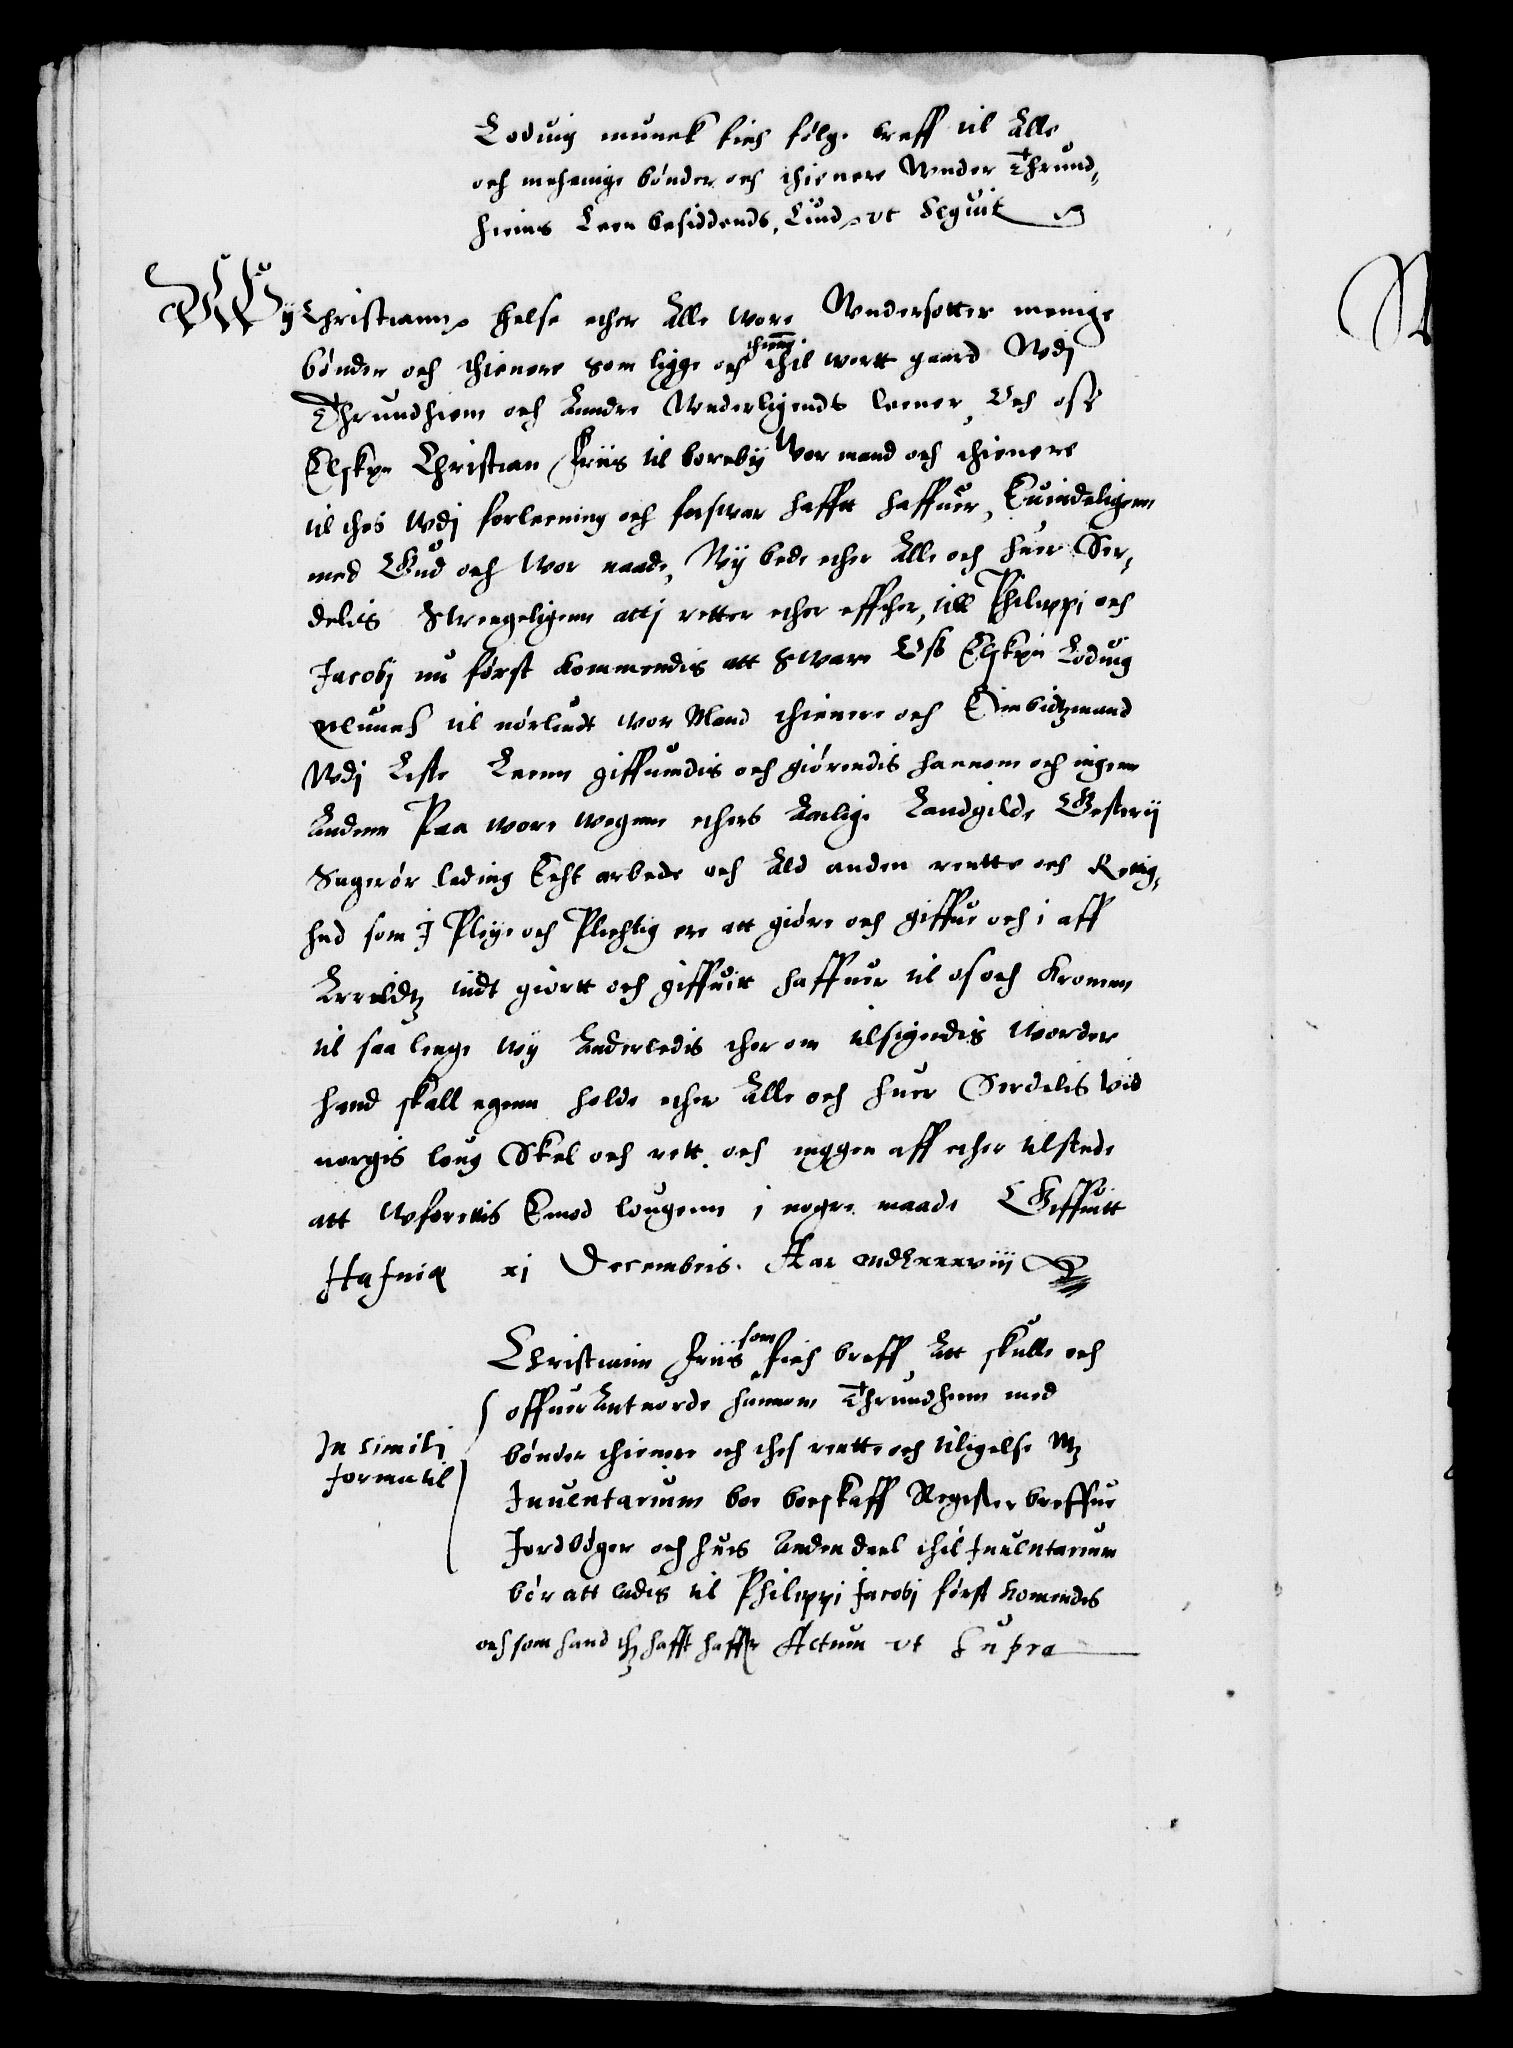 Loduig munck fich følge breff til Alle
och mehenige bønder och thienere Vnder Thrund¬
hiems Leen besiddends, Liud. vt Seguit
Wij Christiann. Helse ether Alle wore Vndersotter menige
bønder och thienere som ligge och thiene
thil wortt gaard Vdj
Thrundhiem och Andre Vnderligends leener, Och oss
Elskpn Christian Friis til borebij Vor mand och thienere
til thes Vdj forleening och forswar hafft haffuer, Euindeligenn
med Gud och Wor naade, Wij bede ether Alle och huer Ser¬
delis Strengeligenn attj retter ether effther, till Philippi och
Jacobj nu først kommendis att Sware Oss Elskpn Loduig
Munck til nørlundt wor Mand thienere och Embidtzmand
Vdj Leste Leenn giffuindis och giørendis hannom och ingenn
Andenn Paa wore wegenn ethers Aarlige Landgilde Gesterij
Sagerør leding Echt arbede och Ald anden rentte och Rettig¬
hed som J Pleye och Plichtig ere att giøre och giffue och i aff
Arrildtz tiidt giortt och giffuitt haffuer til os och Kronnen
til saa lenge Wij Anderledis ther om tilsigendis Worder
hand skall egenn holde ether Alle och huer Serdelis Vid
norgis loug Skel och rett. och inggen aff ether tilstede
att Wforettis Emod lougenn i nogre maade Giffuitt
Hafniæ xj Decembris. Aar mdlxxxviij
Christian Friis som fich breff Att skulle och
offuer Antuorde hannom Thrundhiem med
In simili
forma til
bønder thienere och thes rentte och tiligelse Mz
Inuentarium boe boeskaff Register breffue
Jordbøger och huis Anden deel thil Inuentarium
bør att ledis til Philippi Jacobj først komendes
och som hand thz hafft haffr Actum vt Supra